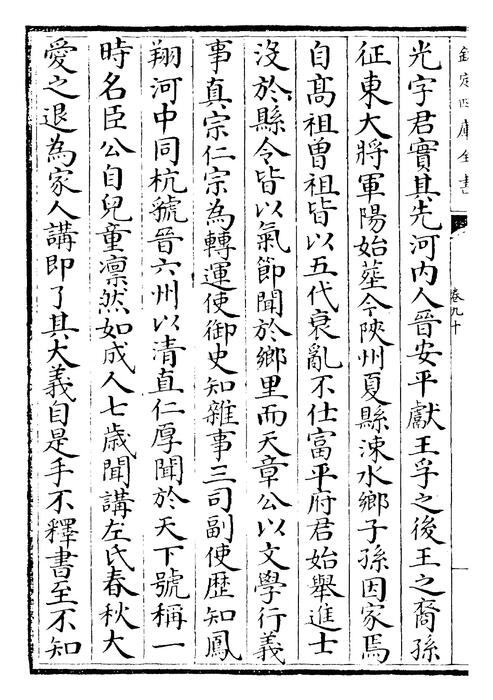 欽定四庫全書
卷九十
光字君實其先河内人晉安平獻王孚之後王之裔孫
征東大將軍陽始塟今陜州夏縣涑水鄉子孫因家焉
自髙祖曽祖皆以五代衰亂不仕富平府君始舉進士
沒於縣令皆以氣節聞於鄉里而天章公以文學行義
事真宗仁宗為轉運使御史知雜事三司副使歴知鳳
翔河中同杭虢晉六州以清直仁厚聞於天下號稱一
時名臣公自兒童凛然如成人七歳聞講左氏春秋大
愛之退為家人講即了其大義自是手不釋書至不知